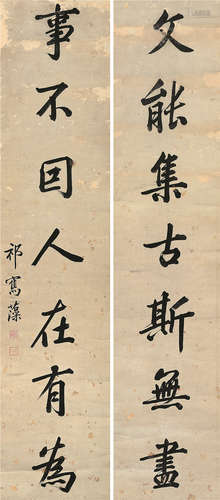 文能集古斯無盡
事不回人在有為
祁寯藻